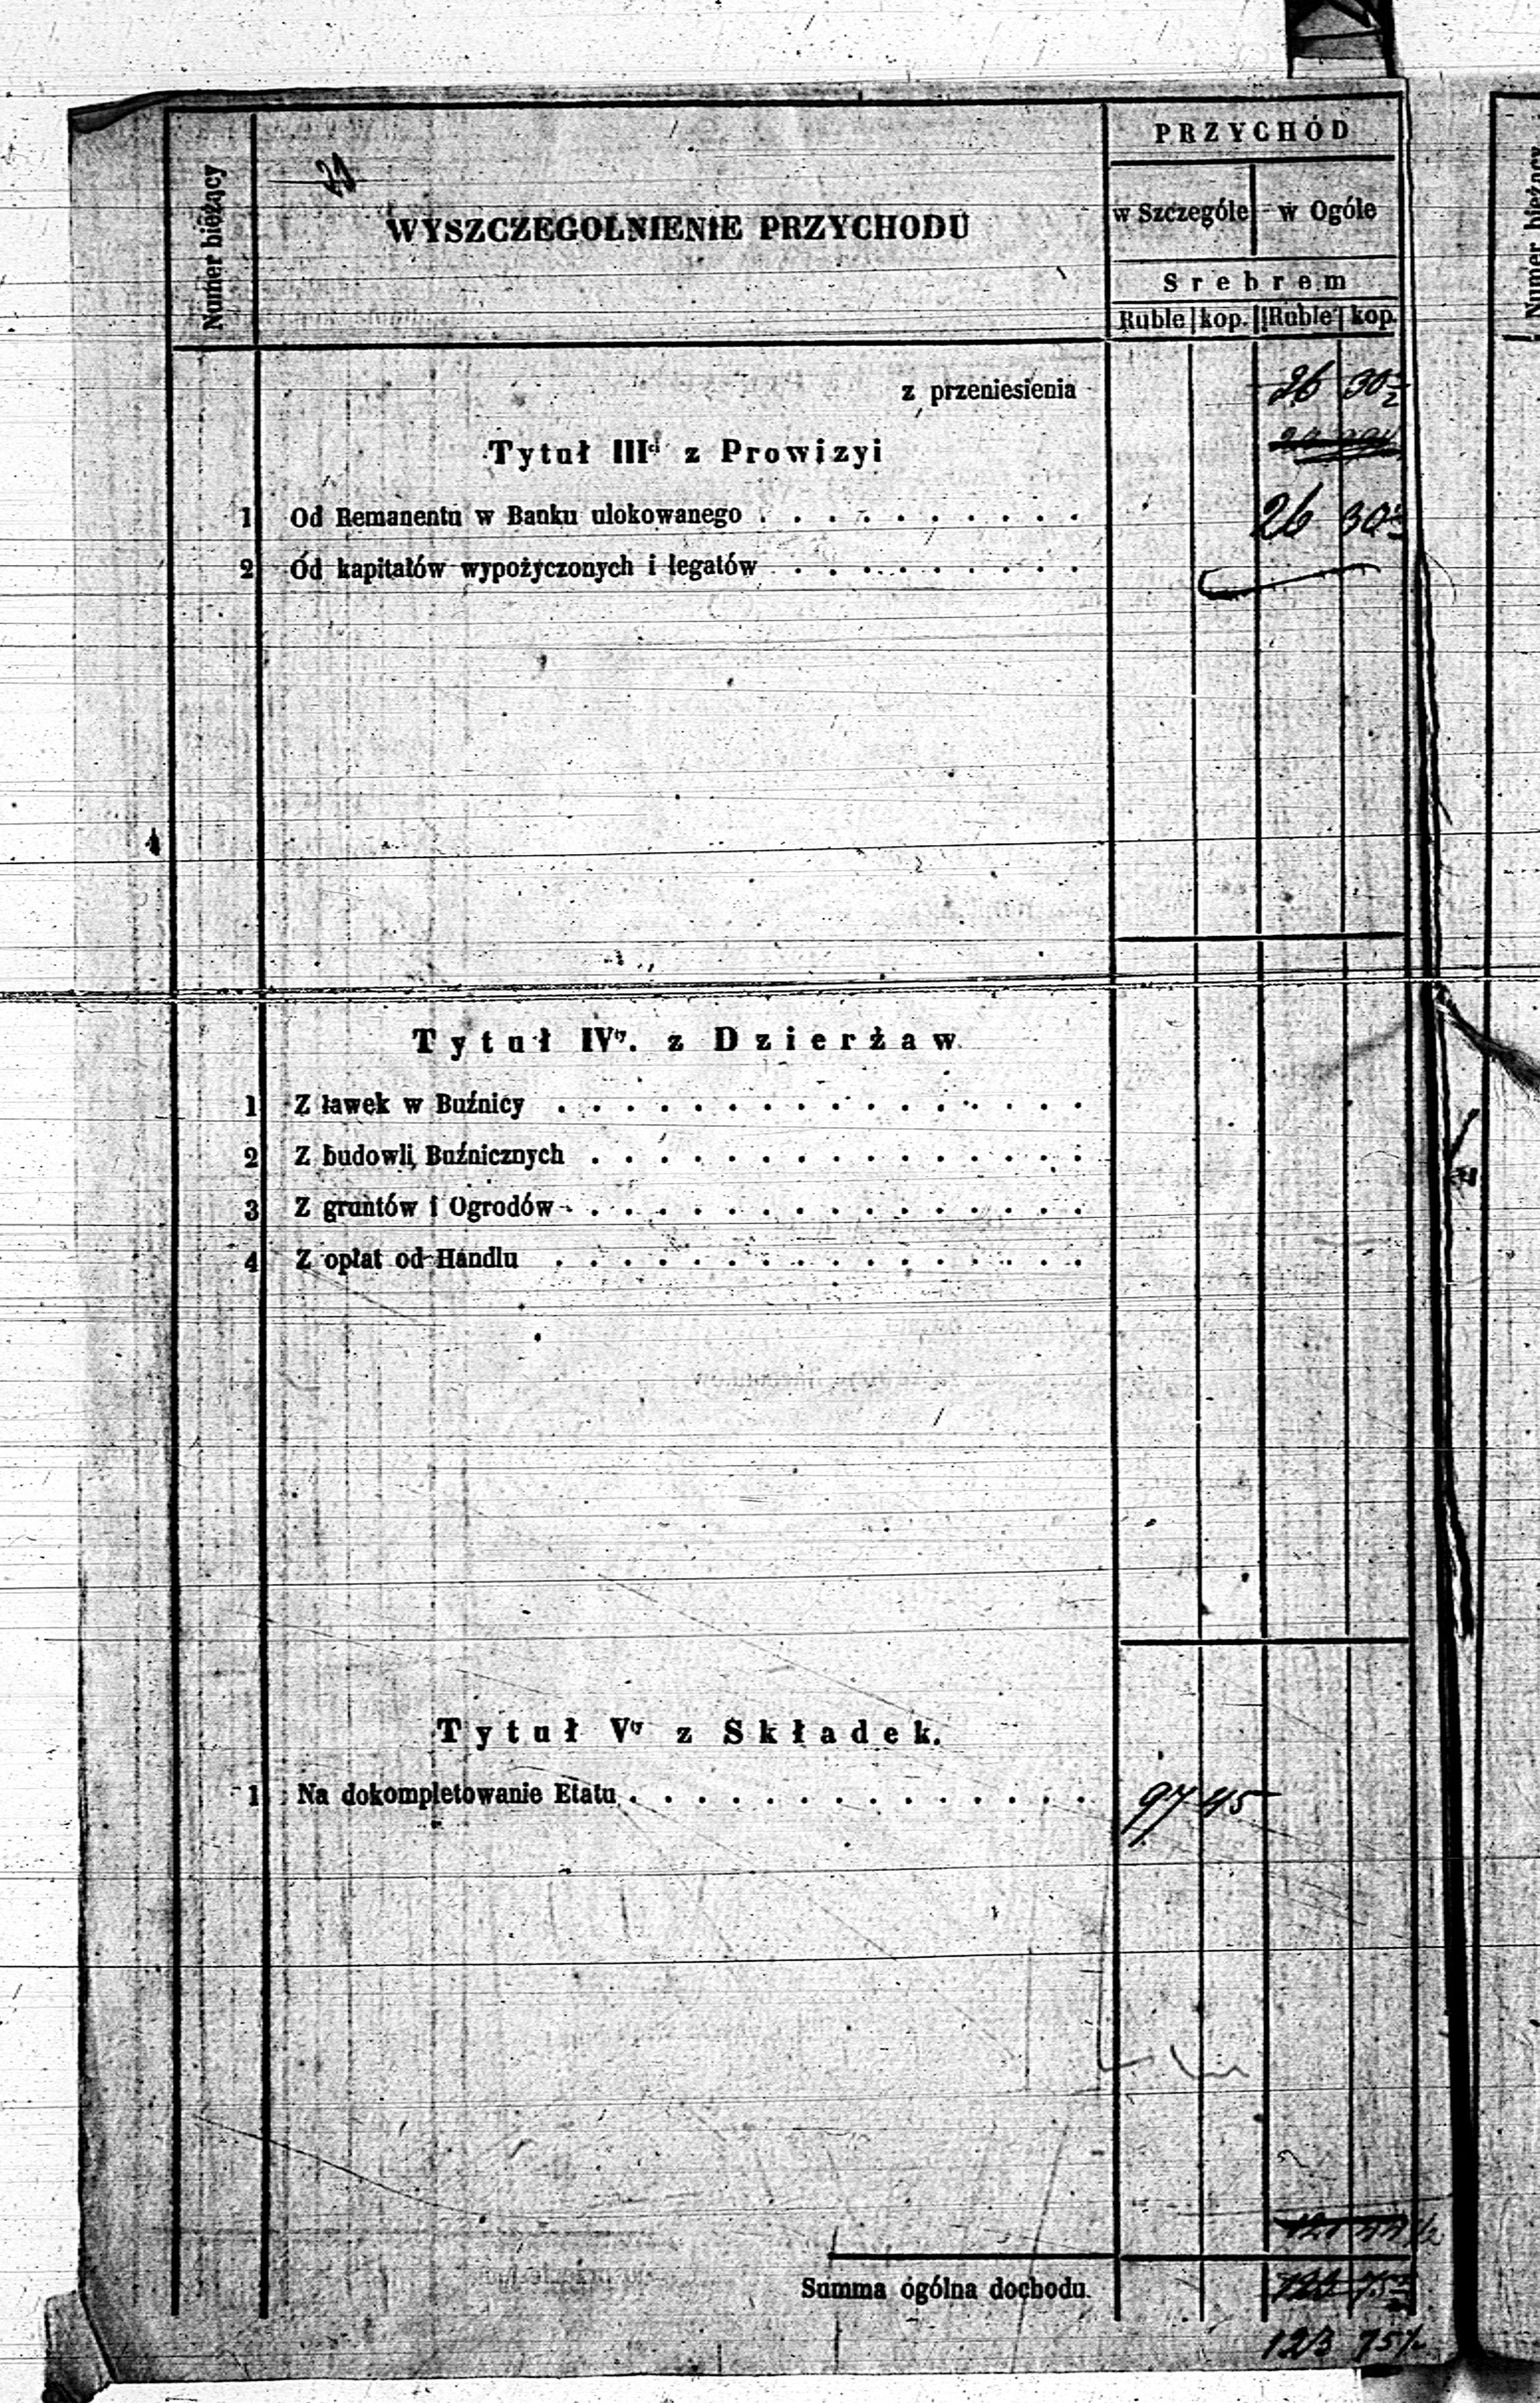 PRZYCHÓD
Numer bieżący
WYSZCZEGOLNIENIE PRZYCHODU
w Szczególe w Ogóle
Srebrem
Ruble kop. Ruble kop.
z przeniesienia 26 30½
Tytuł IIIci z Prowizyi
1 Od Remanentu w Banku ulokowanego . . . . . . . . . . 26 30½
2 Od kapitałów wypożyczonych i legatów . . . . . . . . .
Tytuł IVty. z Dzierżaw
1 Z ławek w Buźnicy . . . . . . . . . . . . . . . .
2 Z budowli Buźnicznych . . . . . . . . . . . . . . .
3 Z gruntów i Ogrodów . . . . . . . . . . . . . . .
4 Z opłat od Handlu . . . . . . . . . . . . . . . .
Tytuł Vty z Składek.
1 Na dokompletowanie Etatu . . . . . . . . . . . . . . 97 45
Summa ogólna dochodu
123 75½